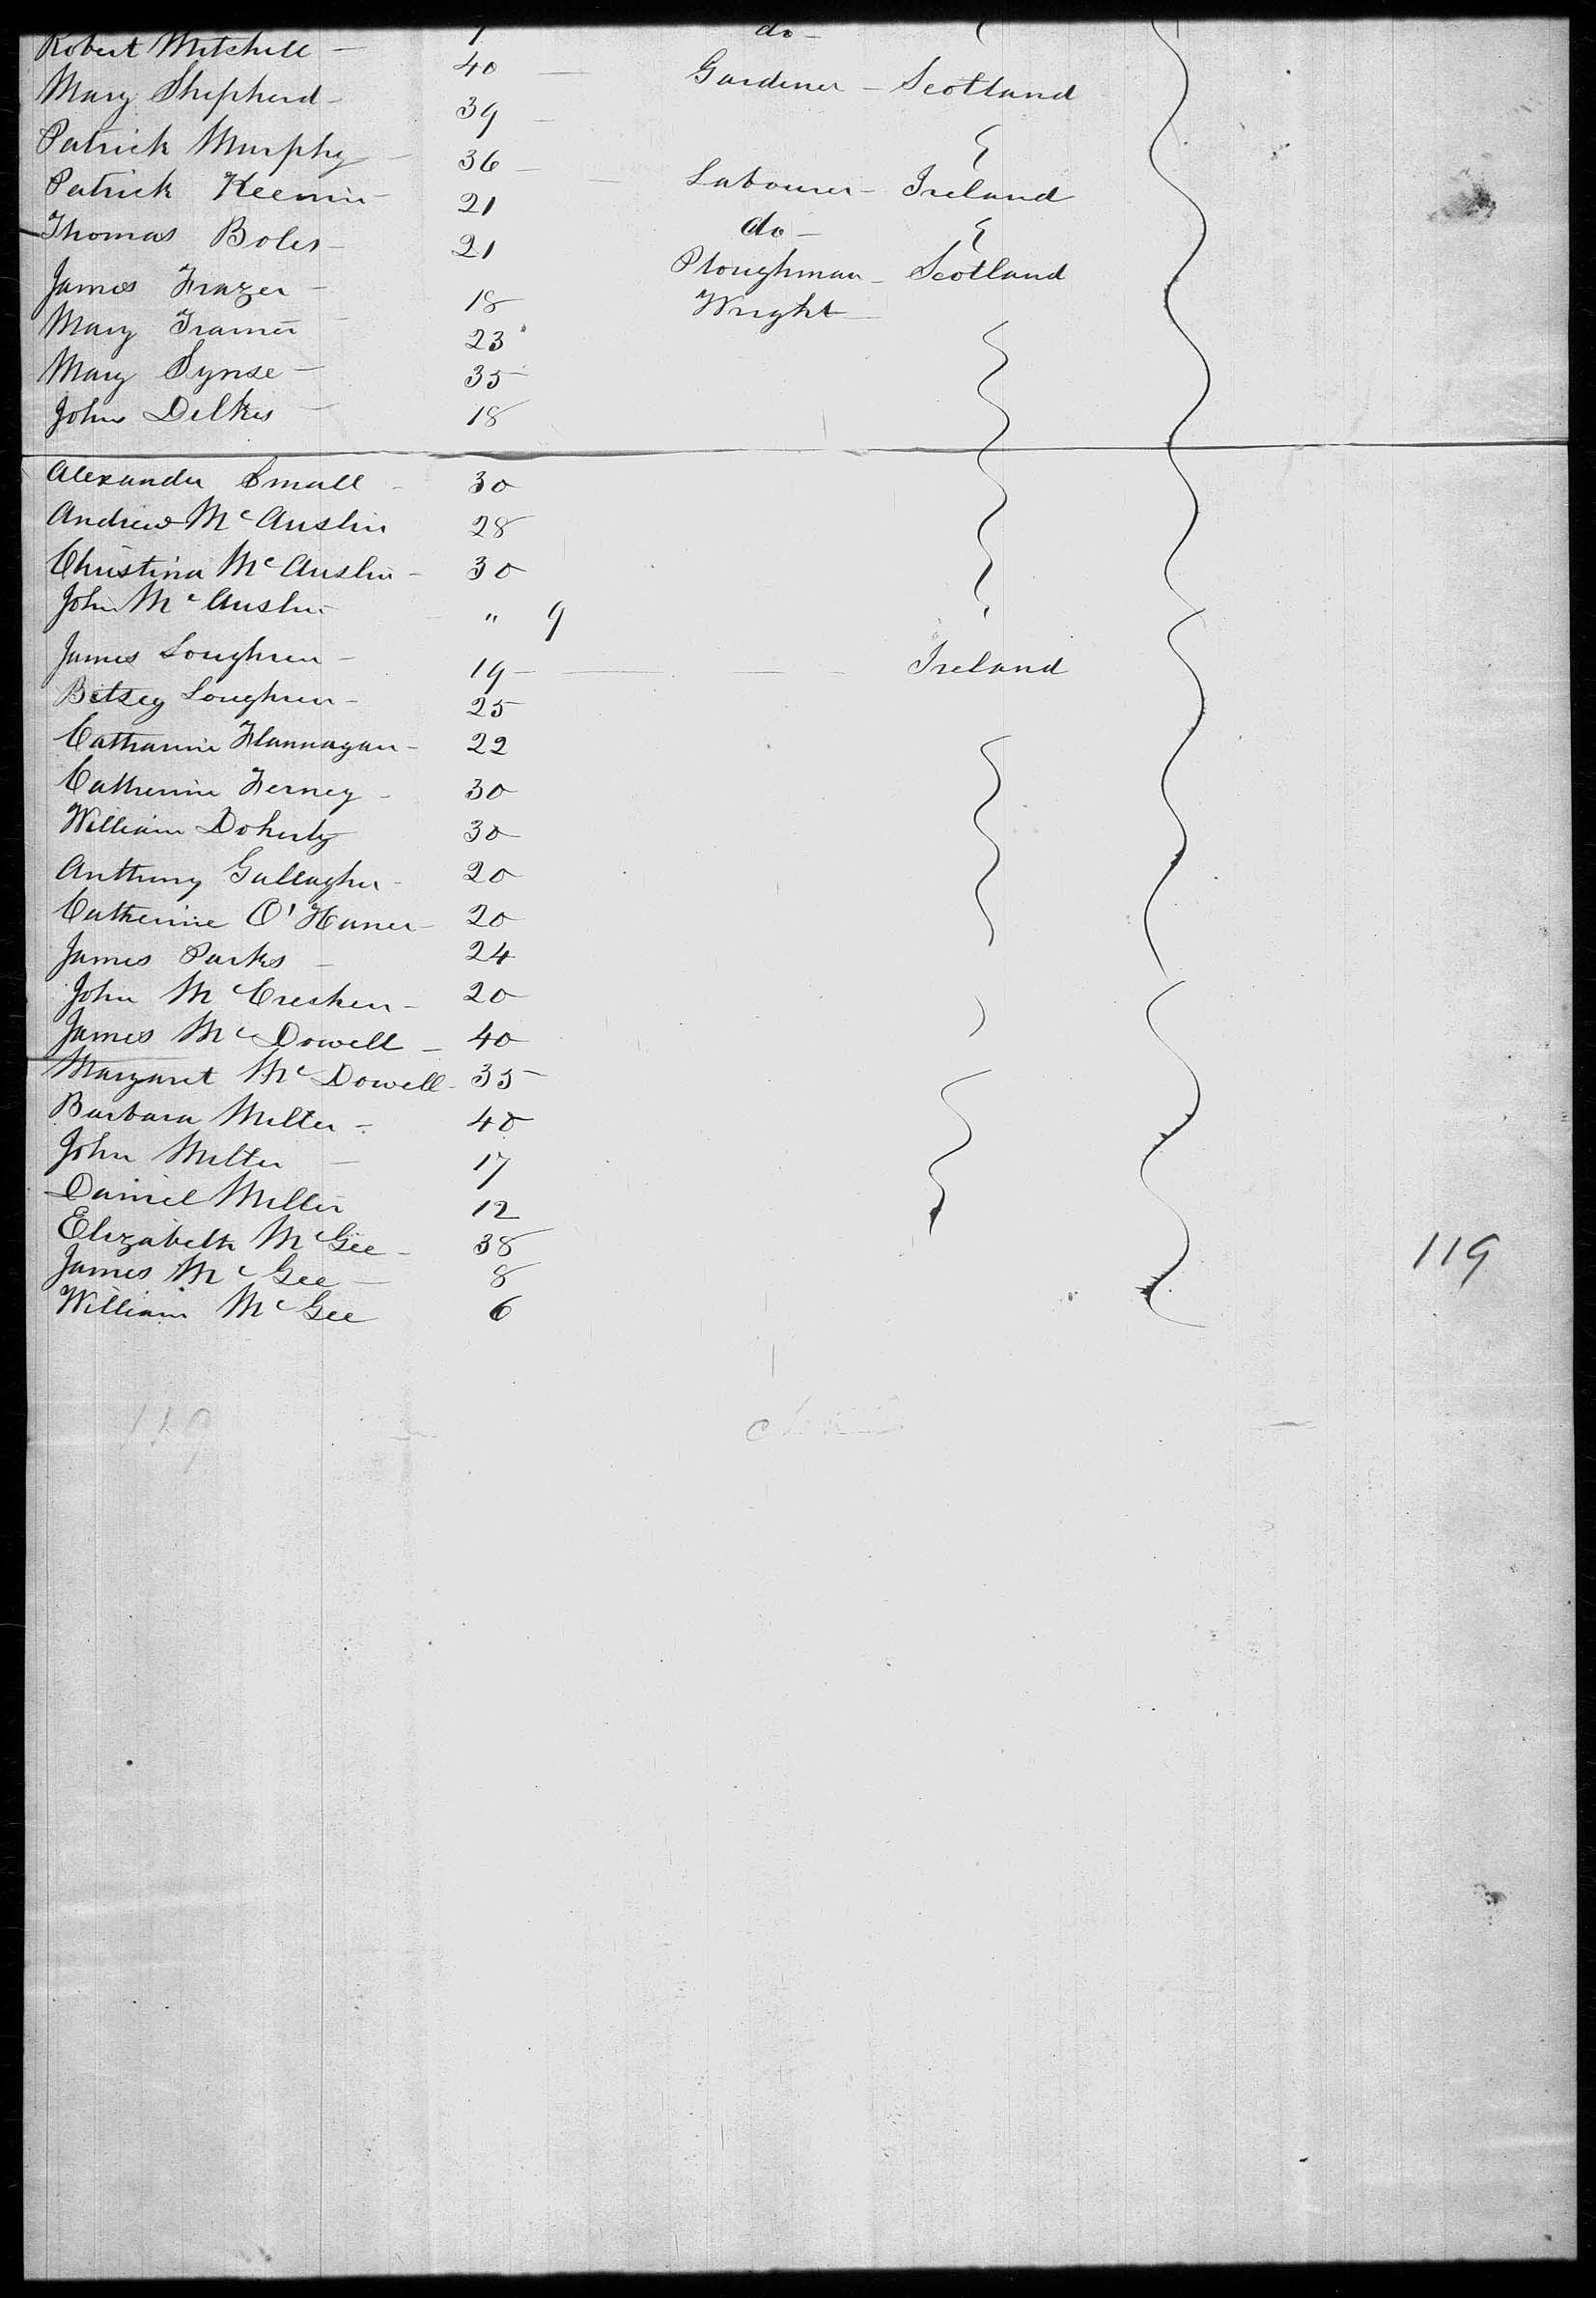 do
Robert Mitchell 40 Gardener Scotland
Mary Shepherd 39
Patrick Murphy 36 Labourer Ireland
Patrick Keenin 21 do
Thomas Boles 21 Ploughman Scotland
James Frazer 18 Wright
Mary Framer 23
Mary Synse 35
John Delkes 18
Alexander Small 30
Andrew McAuslin 28
Christina McAuslin 30
John McAuslin " 9
James Loughren 19 Ireland
Betsey Loughren 25
Catharine Flannagan 22
Catherine Ferney 30
William Doherty 30
Anthony Gallagher 20
Catherine O'Haner 20
James Parks 24
John McCresken 20
James McDowell 40
Margaret McDowell 35
Barbara Miller 40
John Miller 17
Daniel Miller 12
Elizabeth McGee 38
James McGee 8
William McGee 6
119